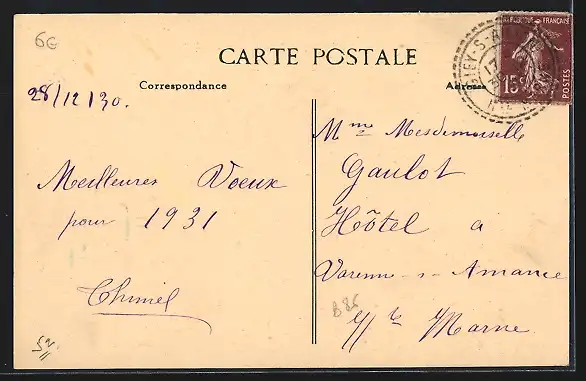 6c
CARTE POSTALE
Correspondance
Adresse
REPUBLIQUE FRANÇAISE
15c
POSTES
28/12/30.
Meilleures Voeux
pour 1931
Mme Mesdemoiselle
Gaulot
Hôtel a
Varenn-s-Amance
Hte Marne
B86